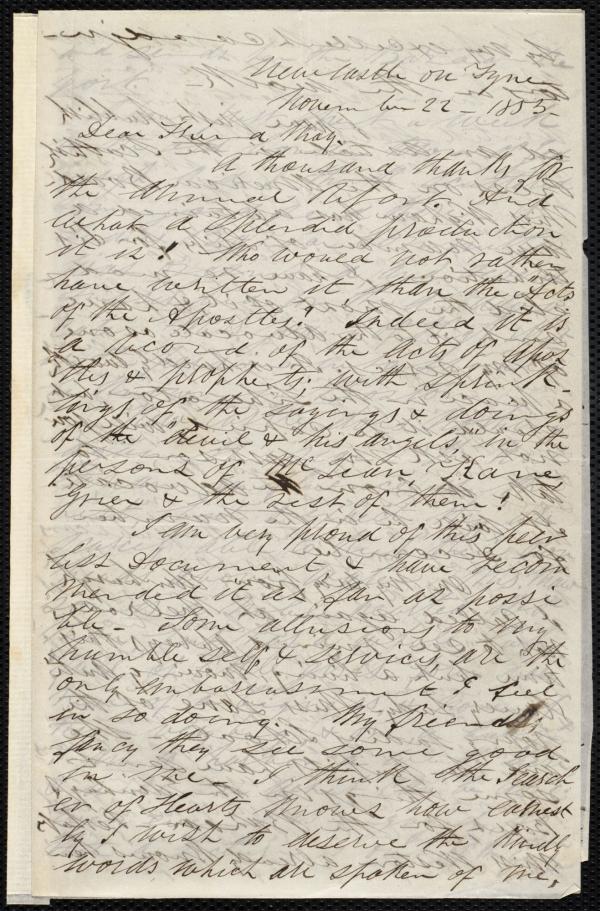 Newcastle on Tyne
November 22 - 1855-
Dear Friend May.
A thousand thanks for
the Annual Report. And
what a splendid production
it is! Who would not rather
have written it than the "Acts
of the Apostles." Indeed it is
a record of the acts of apos
tles & prophets, with sprink-
lings of the sayings & doings
of the "devil & his angels" in the
persons of McLean, Kane,
Grier & the rest of them!
I am very proud of this peer
less Document & have recom
mended it as far as possi
ble - Some allusions to my
humble self & services, are the
only embarassment I feel
in so doing. My friends,
fancy they see some good
in me - I think the Search
er of Hearts knows how earnest
ly I wish to deserve the kindly
words which are spoken of me,